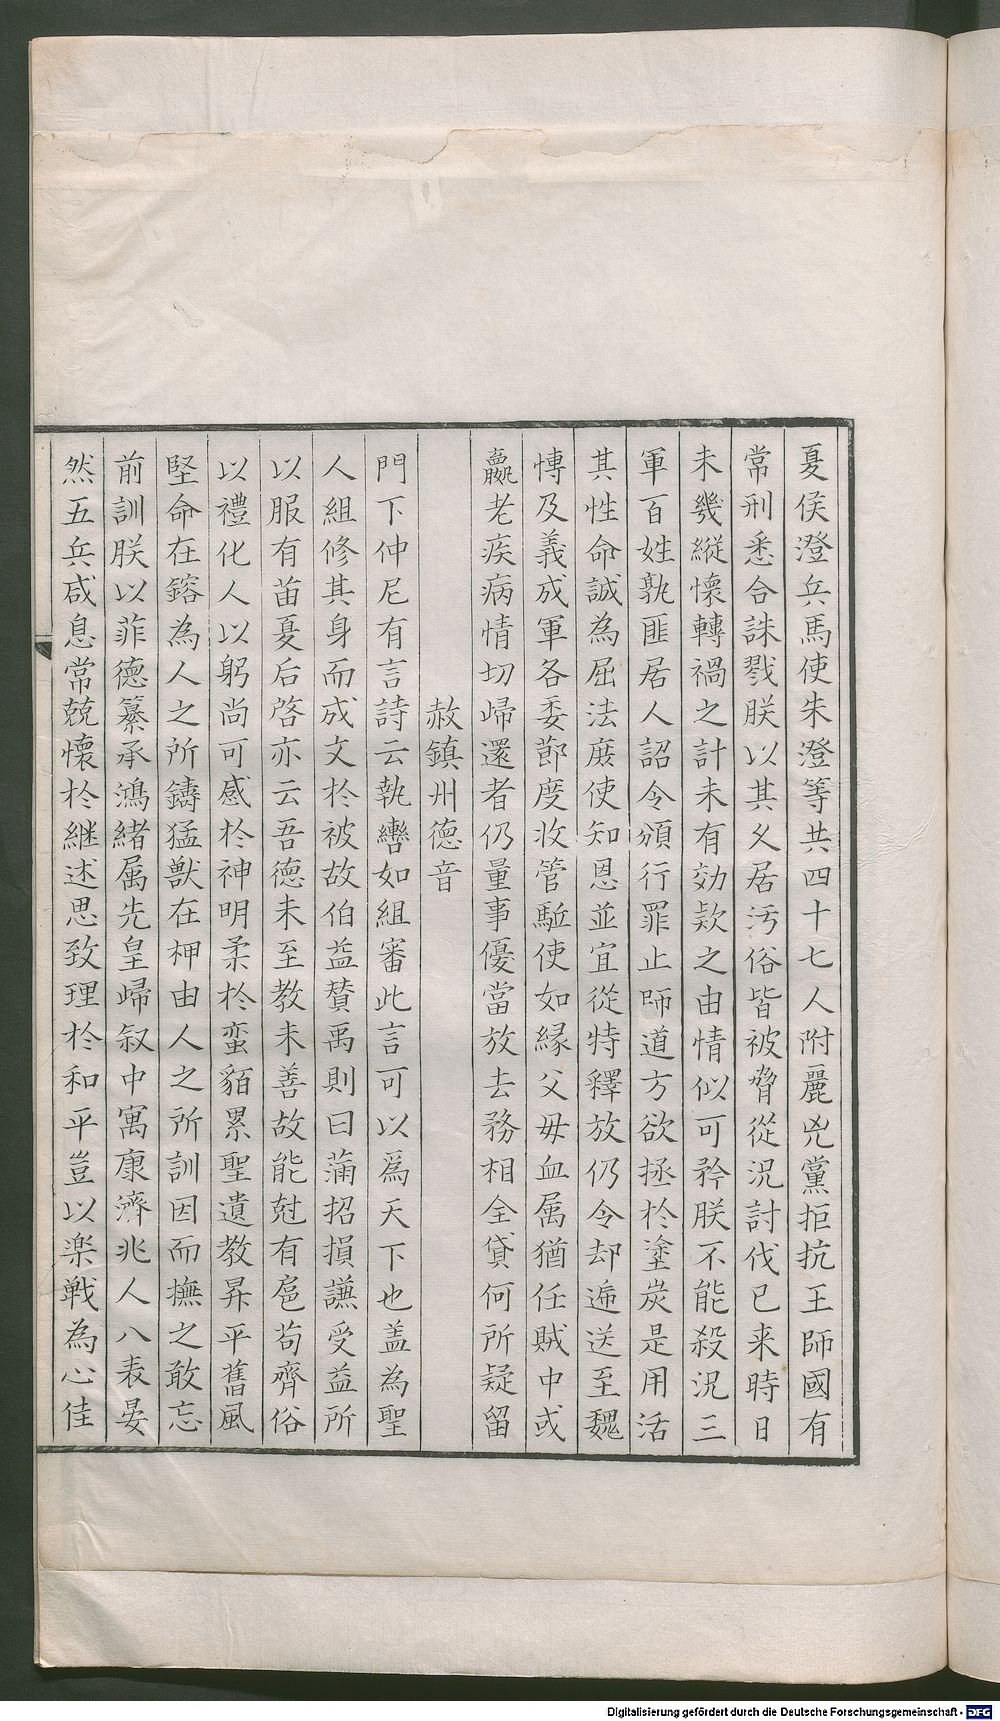 夏侯澄兵馬使朱澄等共四十七人附麗兇黨拒抗王師國有
常刑悉合誅戮朕以其久居汚俗皆被脅從況討伐已来時日
未幾縱懐轉禍之計未有効款之由情似可矜朕不能殺況三
軍百姓孰匪居人詔令頒行罪止師道方欲拯於塗炭是用活
其性命誠為屈法庶使知恩並宜從特釋放仍令却逓送至魏
愽及義成軍各委莭度收管駈使如縁父母血属猶任賊中或
羸老疾病情切歸還者仍量事優當放去務相全貸何所疑留
赦鎮州德音
門下仲尼有言詩云執轡如組審此言可以爲天下也盖為聖
人組修其身而成文於被故伯益賛禹則曰蒲招損謙受益所
以服有苗夏后啓亦云吾德未至教未善故能尅有扈苟齊俗
以禮化人以躬尚可感於神明柔於蛮貊累聖遺教昇平舊風
堅命在鎔為人之所鑄猛獣在柙由人之所訓因而撫之敢忘
前訓朕以菲德纂承鴻緒属先皇歸叙中寓康濟兆人八表晏
然五兵咸息常兢懐於継述思致理於和平豈以楽戦為心佳
Digitalisierung gefördert durch die Deutsche Forschungsgemeinschaft - DFG